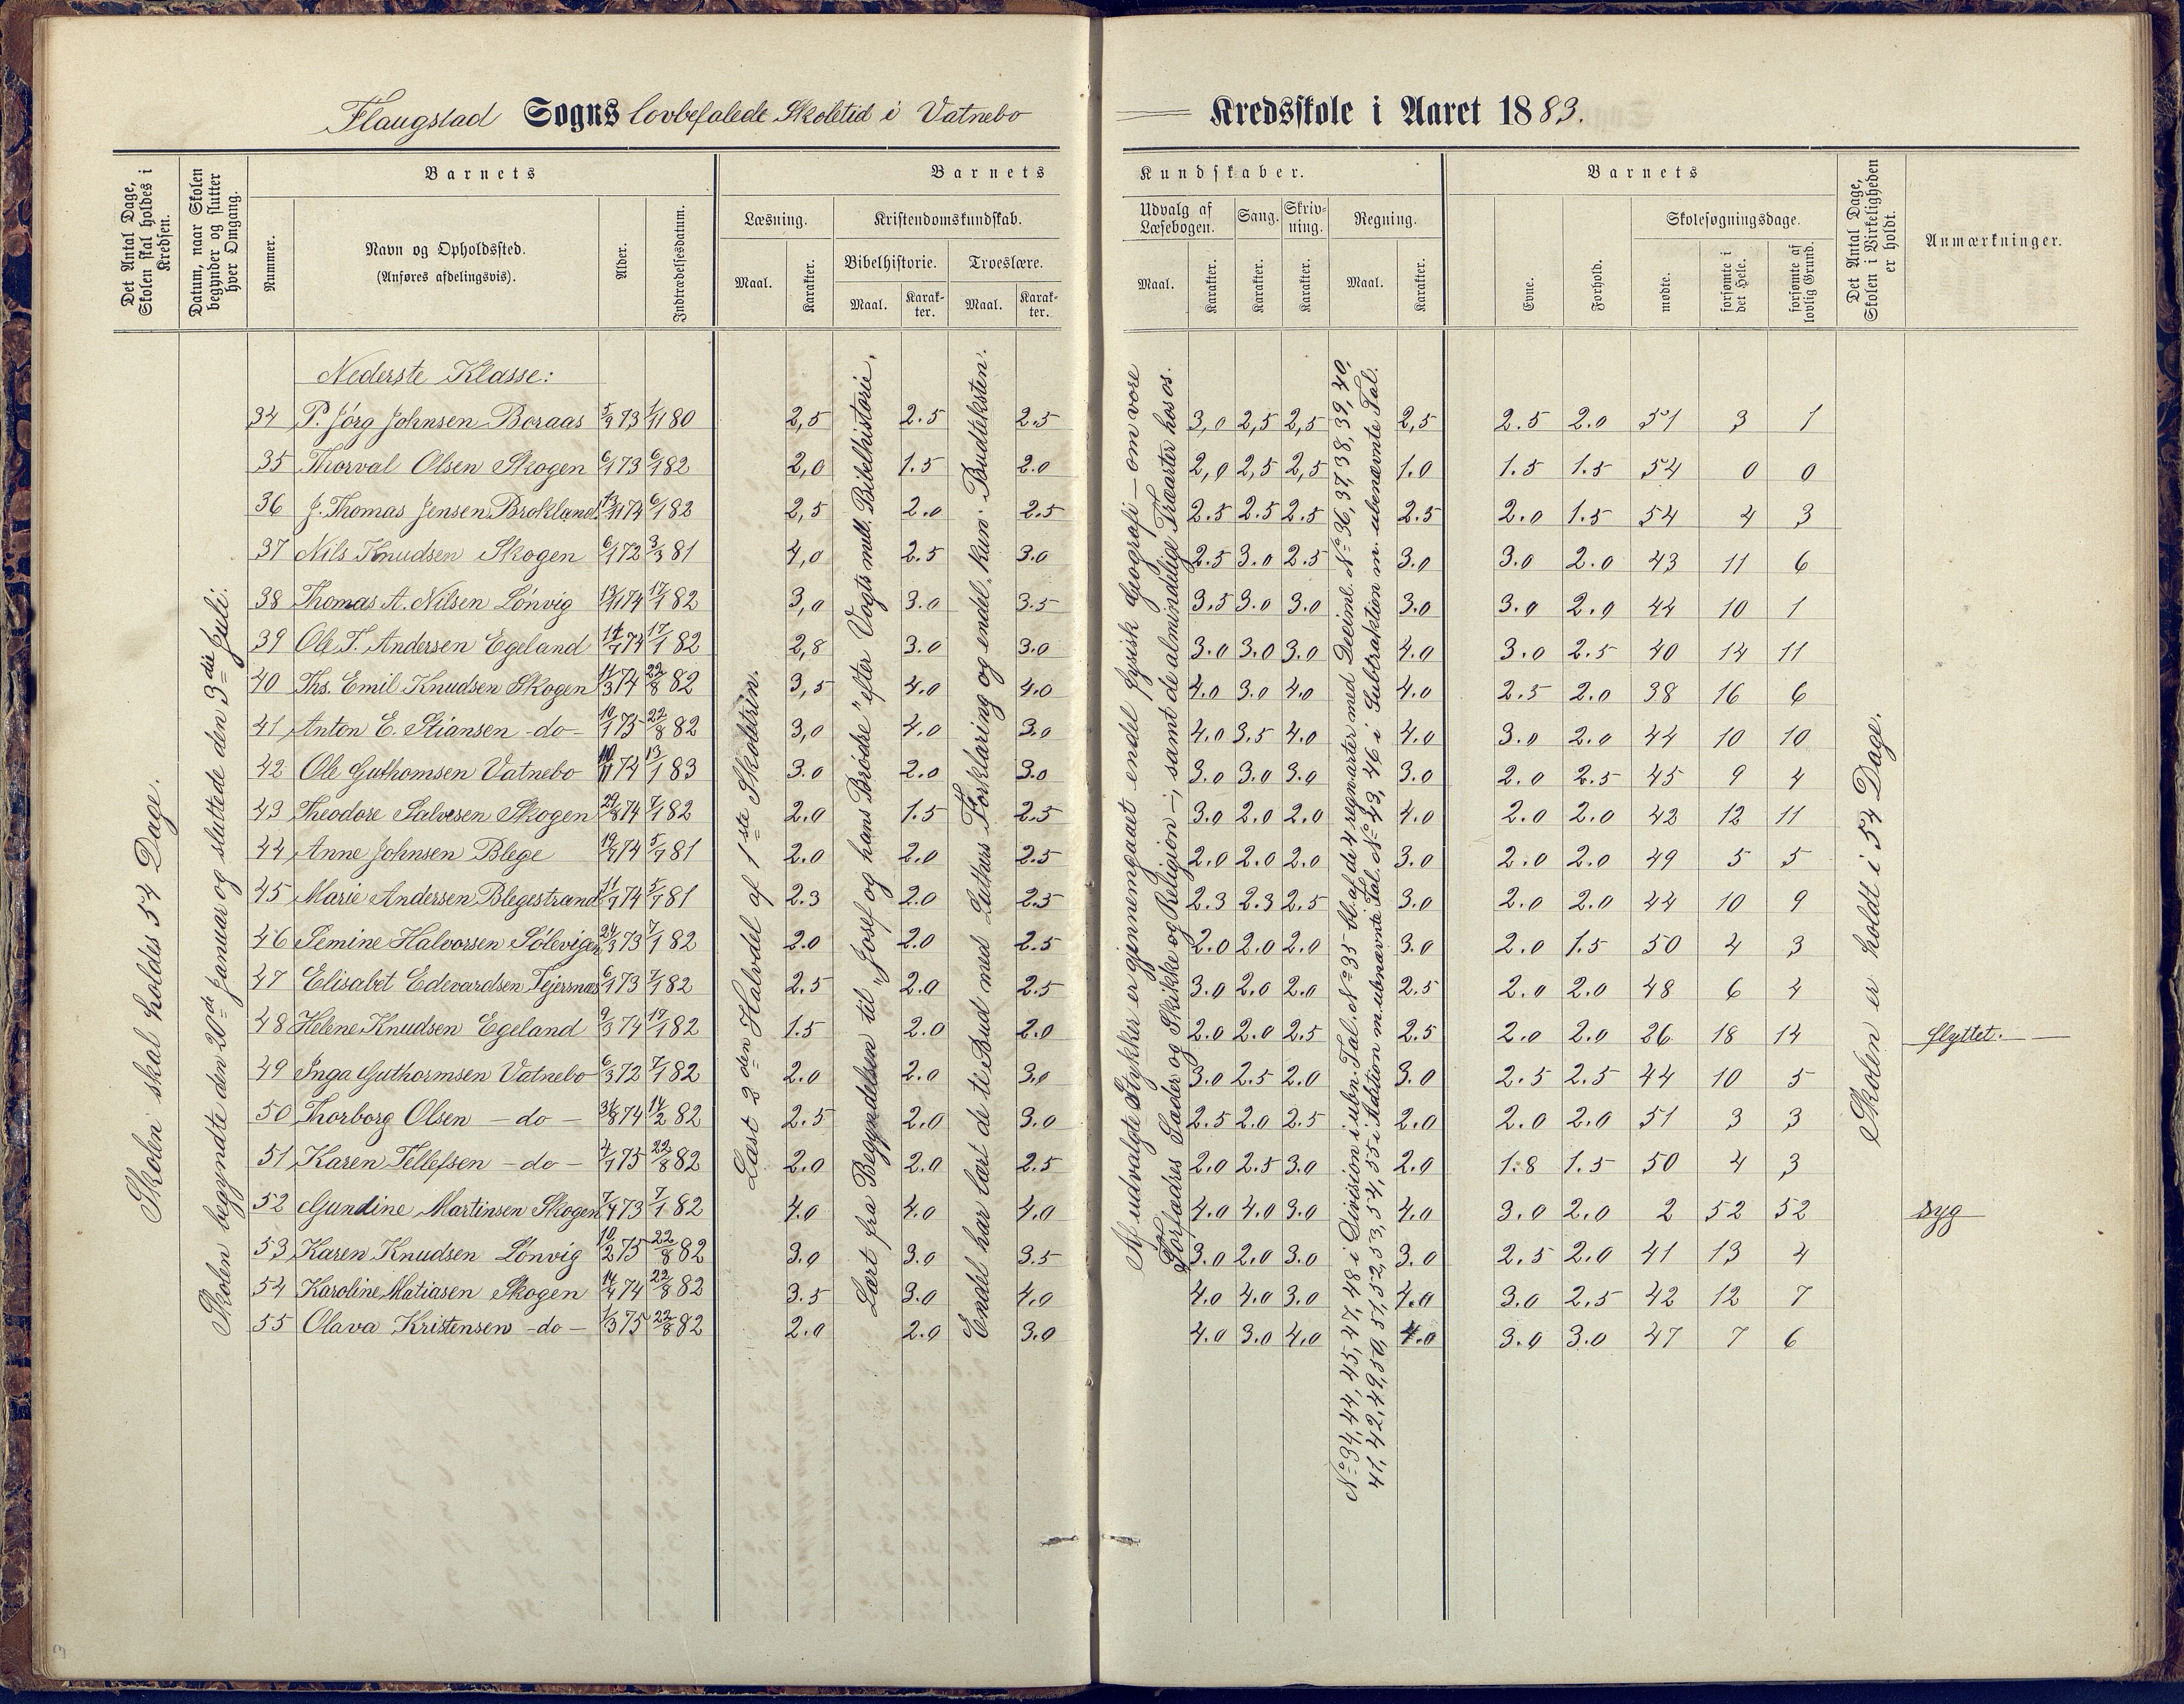 Flaugstad Sogns lovbefalede Skoletid i Vatnebo Kredsskole i Aaret 1883.
Det Antal Dage, Skolen skal holdes i Kredsen.
Datum, naar Skolen begynder og slutter hver Omgang.
Barnets
Nummer.
Navn og Opholdssted.
(Anføres afdelingsvis).
Alder.
Indtrædelsesdatum.
Barnets Kundskaber.
Læsning.
Maal. Karakter.
Kristendomskundskab.
Bibelhistorie. Troeslære.
Maal. Karakter. Maal. Karakter.
Udvalg af Læsebogen.
Maal. Karakter.
Sang.
Karakter.
Skrivning.
Karakter.
Regning.
Maal. Karakter.
Barnets
Evne. Forhold.
Skolesøgningsdage.
mødte. forsømte i det Hele. forsømte af lovlig Grund.
Det Antal Dage, Skolen i Virkeligheden er holdt.
Anmærkninger.
Skolen skal holdes 54 Dage.
Skolen begyndte den 20de Januar og sluttede den 3die Juli.
Læst 2den Halvdel af 1ste Skoletrin.
Lært fra Begyndelsen til "Josef og hans Brödre" efter Vogts mell. Bibelhistorie.
Endel har lært de ti Bud med Luthers Forklaring og endel kun Budteksten.
Af udvalgte Stykker er gjennemgaaet endel fysisk Geografi – om vore
Forfædres Sæder og Skikke og Religion –, samt de almindelige Træarter hos os.
No 34, 44, 45, 47, 48 i Division i ubn. Tal. No 35 bl. af de 4 regnarter med Deciml. No 36, 37, 38, 39, 40,
41, 42, 49, 50, 51, 52, 53, 54, 55 i Addition m. ubnævnte Tal. No 43, 46 i Subtraktion m. ubenævnte Tal.
Skolen er holdt i 54 Dage.
Nederste Klasse:
34 P. Jörg Johnsen Boraas 5/9 73 1/11 80 2,5 2.5 2.5 3,0 2,5 2,5 2,5 2.5 2.0 51 3 1
35 Thorval Olsen Skogen 6/1 73 6/1 82 2,0 1.5 2.0 2,0 2,5 2,5 1.0 1.5 1.5 54 0 0
36 J. Thomas Jensen Brokland 13/11 74 6/1 82 2,5 2.0 2.5 2.5 2.5 2.5 2.5 2.0 1.5 54 4 3
37 Nils Knudsen Skogen 6/1 72 3/3 81 4,0 2.5 3.0 2.5 3.0 2.5 3.0 3.0 2.0 43 11 6
38 Thomas A. Nilsen Lönvig 13/11 74 17/1 82 3,0 3.0 3.5 3.5 3.0 3.0 3.0 3.0 2.0 44 10 1
39 Ole T. Andersen Egeland 14/7 74 17/1 82 2,8 3.0 3.0 3.0 3.0 3.0 4.0 3.0 2.5 40 14 11
40 Ths. Emil Knudsen Skogen 14/3 74 22/8 82 3,5 4.0 4.0 4.0 3.0 4.0 4.0 2.5 2.0 38 16 6
41 Anton E. Stiansen - do - 10/1 75 22/8 82 3,0 4.0 3.0 4.0 3.5 4.0 4.0 3.0 2.0 44 10 10
42 Ole Guthomsen Vatnebo 10/11 74 13/1 83 3.0 2.0 3.0 3.0 3.0 3.0 3.0 2.0 2.5 45 9 4
43 Theodore Salvesen Skogen 29/8 74 7/1 82 2.0 1.5 2.5 3.0 2.0 2.0 4.0 2.0 2.0 42 12 11
44 Anne Johnsen Blege 19/7 74 5/7 81 2.0 2.0 2.5 2.0 2.0 2.0 3.0 2.0 2.0 49 5 5
45 Marie Andersen Blegestrand 11/7 74 5/7 81 2.3 2.0 2.5 2.3 2.3 2.5 3.0 2.0 2.0 44 10 9
46 Semine Halvorsen Sölevigen 24/3 73 7/1 82 2.0 2.0 2.5 2.0 2.0 2.0 3.0 2.0 1.5 50 4 3
47 Elisabet Edevardsen Tejersnæs 6/1 73 7/1 82 2.5 2.0 2.5 3.0 2.0 2.0 2.5 2.0 2.0 48 6 4
48 Helene Knudsen Egeland 9/3 74 17/1 82 1.5 2.0 2.0 2.0 2.0 2.5 2.5 2.0 2.0 26 18 14 flyttet.
49 Inga Guthormsen Vatnebo 6/3 72 7/1 82 2.0 2.0 3.0 3.0 2.5 2.0 3.0 2.5 2.5 44 10 5
50 Thorborg Olsen - do - 31/8 74 14/2 82 2.5 2.0 3.0 2.5 2.0 2.5 2.0 2.0 2.0 51 3 3
51 Karen Tellefsen - do - 4/1 75 22/8 82 2.0 2.0 2.5 2.0 2.5 3.0 2.0 1.8 1.5 50 4 3
52 Gundine Martinsen Skogen 7/4 73 7/1 82 4.0 4.0 4.0 4.0 4.0 3.0 4.0 3.0 2.0 2 52 52 syg
53 Karen Knudsen Lönvig 10/2 75 22/8 82 3.0 3.0 3.5 3.0 2.0 3.0 3.0 2.5 2.0 41 13 4
54 Karoline Matiasen Skogen 14/4 74 22/8 82 3.5 3.0 4.0 4.0 4.0 3.0 4.0 3.0 2.5 42 12 7
55 Olava Kristensen - do - 1/3 75 22/8 82 2.0 2.0 3.0 4.0 3.0 4.0 4.0 3.0 3.0 47 7 6